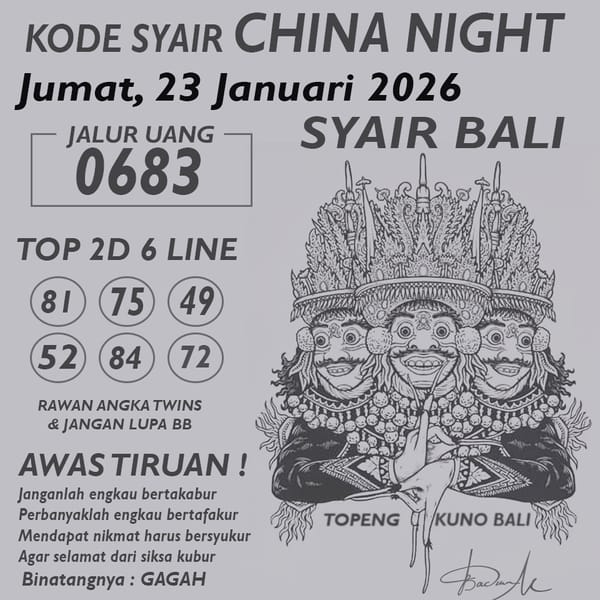 KODE SYAIR CHINA NIGHT
Jumat, 23 Januari 2026
JALUR UANG
0683
SYAIR BALI
TOP 2D 6 LINE
81 75 49
52 84 72
RAWAN ANGKA TWINS
& JANGAN LUPA BB
AWAS TIRUAN !
Janganlah engkau bertakabur
Perbanyaklah engkau bertafakur
Mendapat nikmat harus bersyukur
Agar selamat dari siksa kubur
Binatangnya : GAGAH
TOPENG KUNO BALI